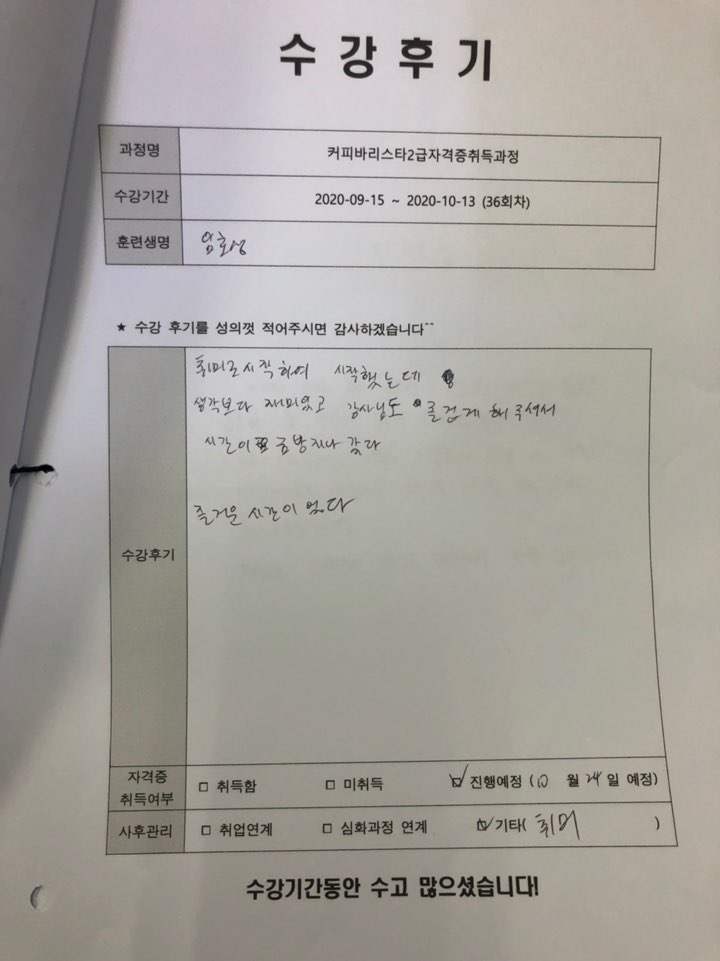 수강후기
과정명 커피바리스타2급자격증취득과정
수강기간 2020-09-15 ~ 2020-10-13 (36회차)
훈련생명
★ 수강 후기를 성의껏 적어주시면 감사하겠습니다^^
취미로시작하여 시작했는데
생각보다 재미있고 강사님도 즐겁게 해주셔서
시간이 금방지나 갔다
수강후기
즐거운 시간이 었다
자격증 취득여부 □ 취득함 □ 미취득 ☑ 진행예정 (10 월 24 일 예정)
사후관리 □ 취업연계 □ 심화과정 연계 ☑ 기타( 취미 )
수강기간동안 수고 많으셨습니다!